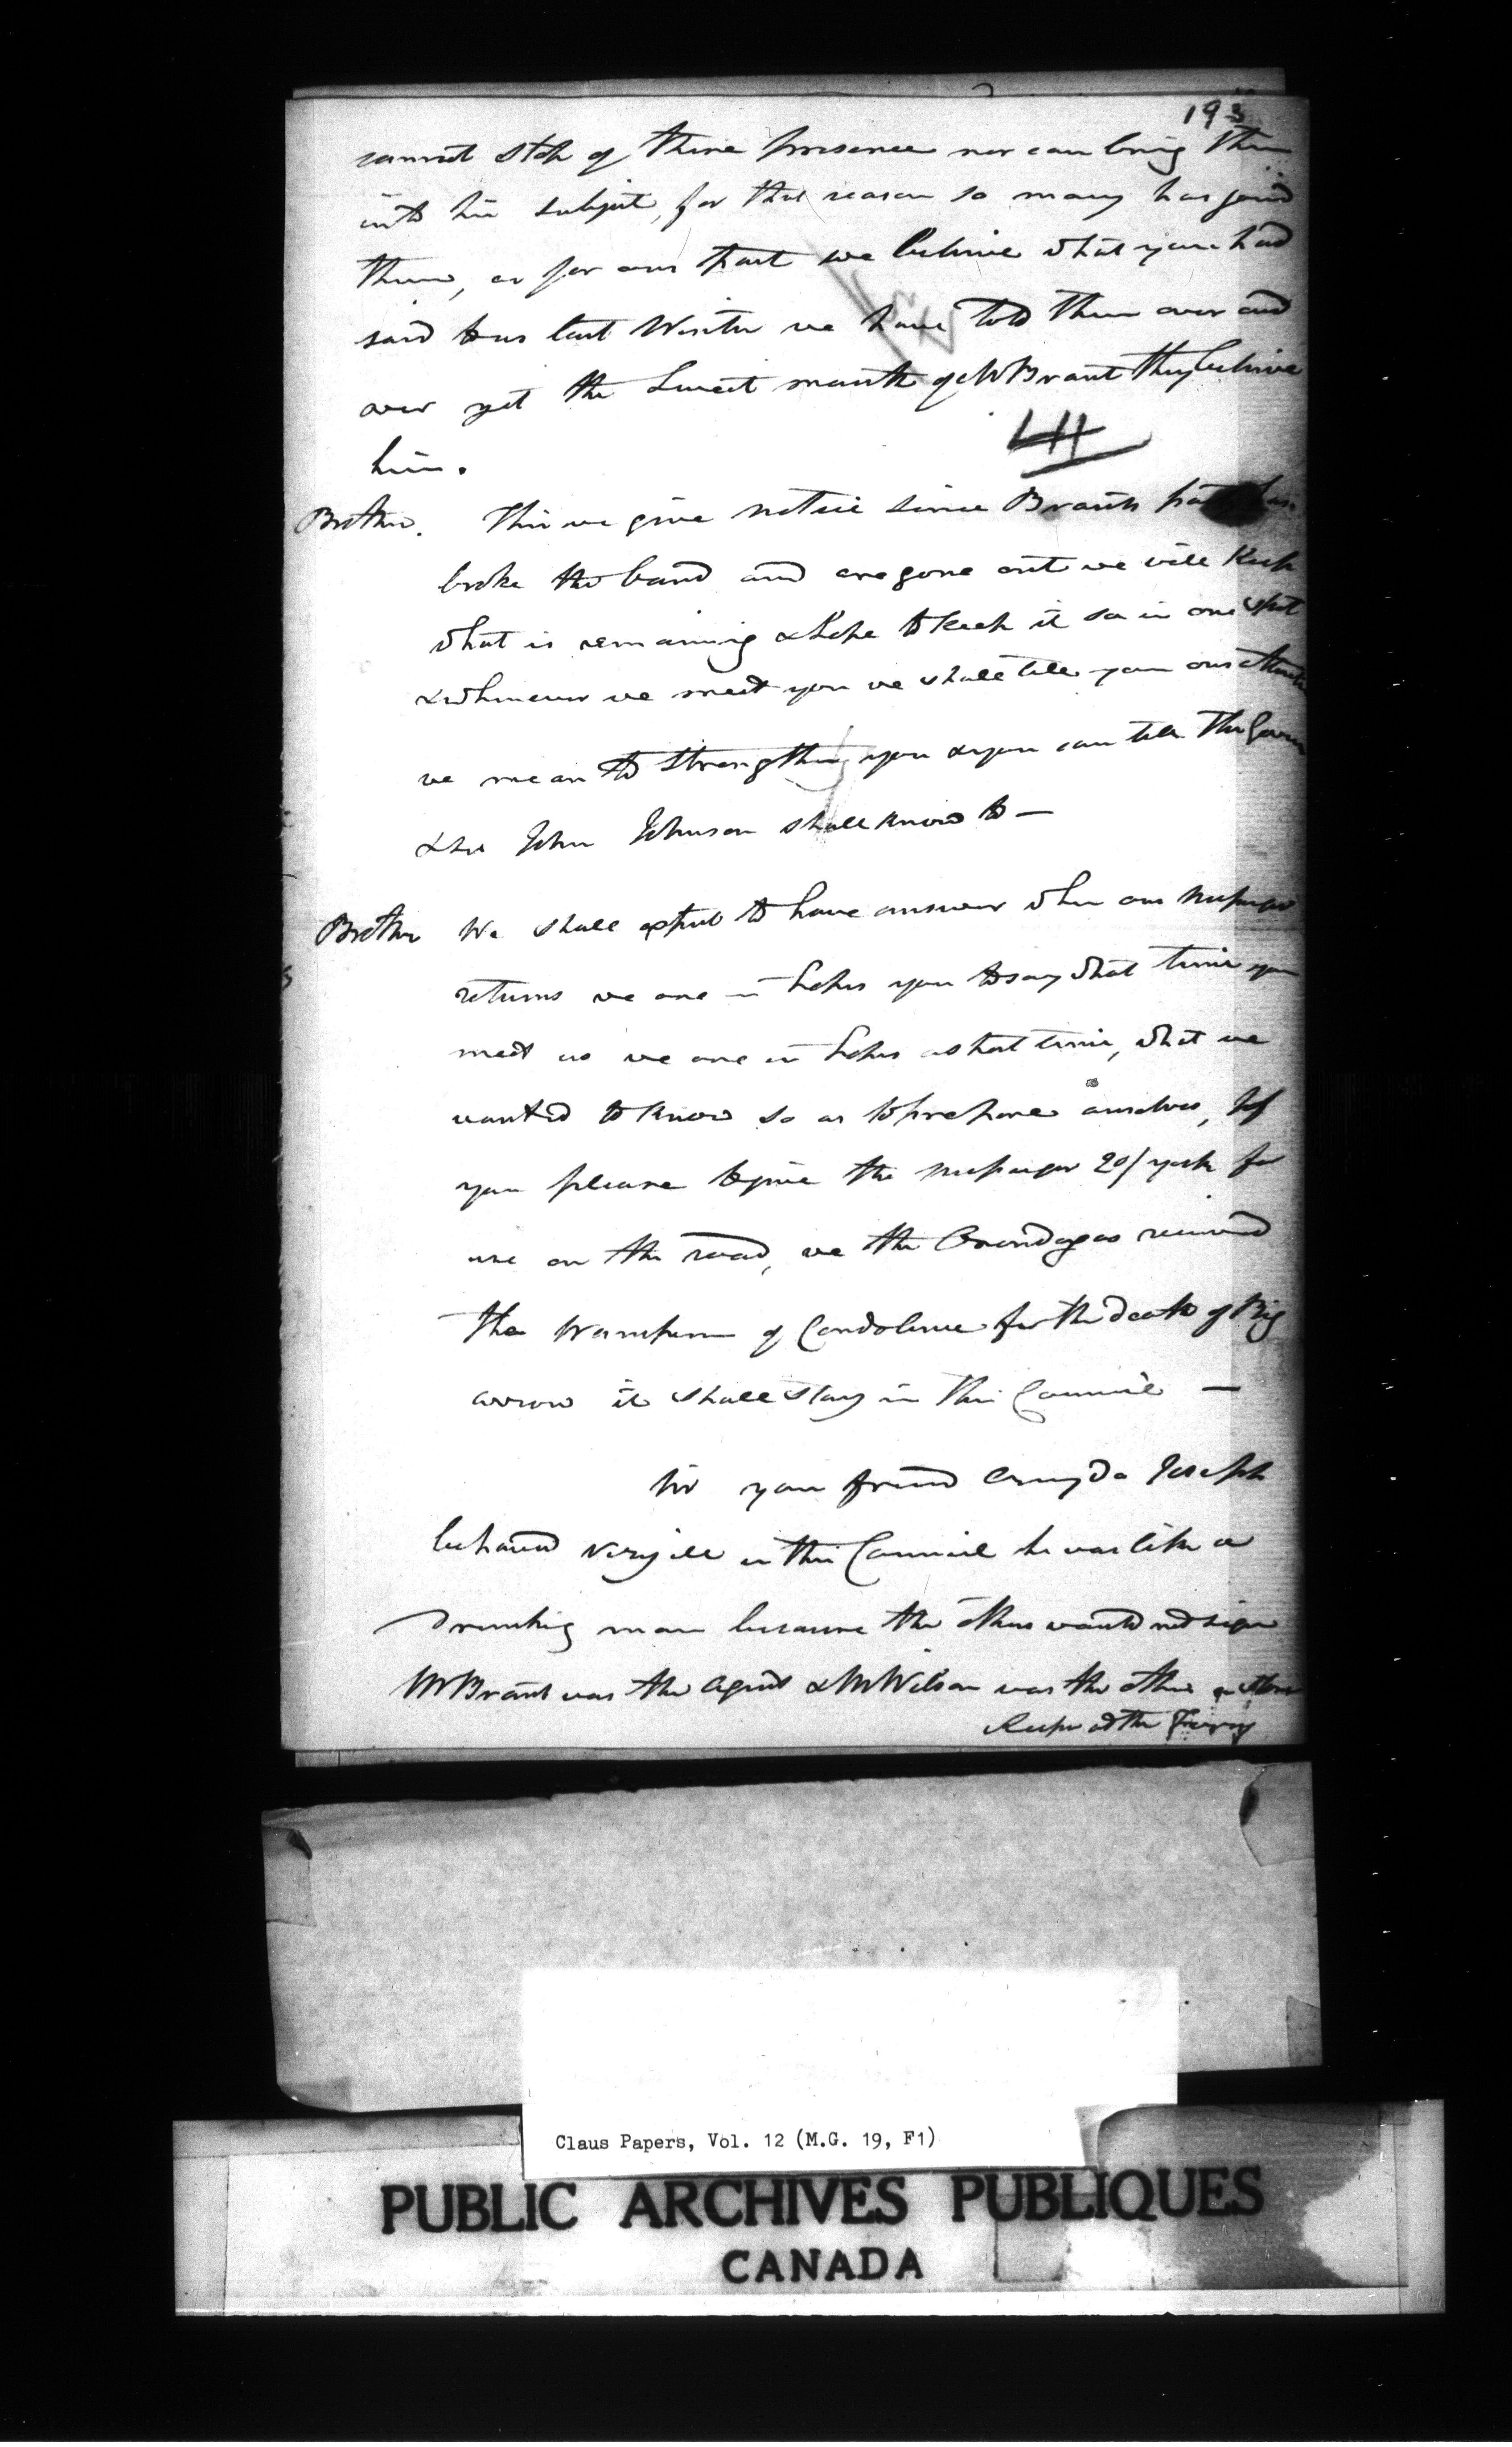 193
cannot Stop of there presence nor can bring them
into his subject, for this reason so many has joind
them, as for our part we believe what you had
said to us last Winter we have told them over and
over yet the Sweet mouth of M Brant they believe
him.
Brother. This we give notice since Brants party has
broke the band and are gone out we will Keep
what is remaining & hope to keep it so in one
& whenever we meet you we shall tell you our
we mean to strengthen you & you can tell the
& Sir John Johnson shall know to —
Brother We shall expect to have answer when our messenger
returns we are in hopes you to say what time you
meet us we are in hopes a short time, what we
wanted to know so as to prepare ourselves, If
you please to give the messenger 20/ york for
use on the road, we the Onondagas received
the Wampum of Condolence for the death of Big
arrow it shall stay in this Council —
Sir your friend Joseph
behaved very ill in this Council he was like a
drunking man because the others wanted not sign
M Brant was the agent & M Wilson was the other
the
Claus Papers, Vol. 12 (M.G. 19, F1)
PUBLIC ARCHIVES PUBLIQUES
CANADA